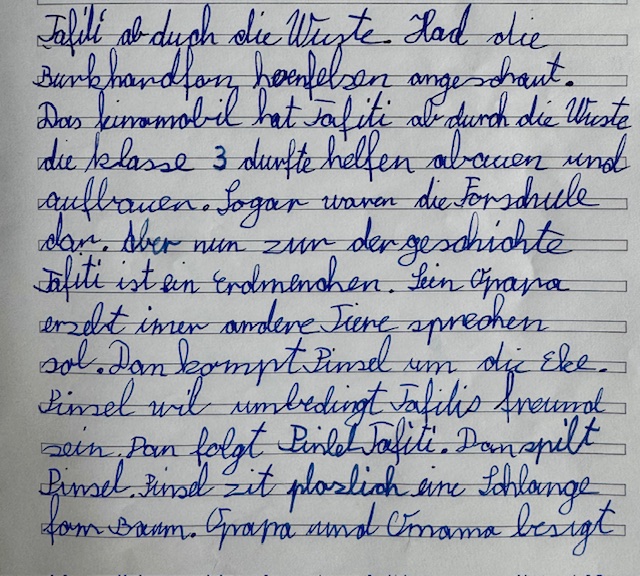 Tafiti ab duch die Wüste. Had die
Burkhardfon hoenfelsen angeschaut.
Das kinomobil hat Tafiti ab durch die Wüste
die klasse 3 durfte helfen abauen und
aufbauen. Sogar waren die Forschule
dar. Aber nun zur der geschichte
Tafiti ist ein Erdmenchen. Sein Opapa
erzelt imer andere Tiere sprechen
sol. Dan kompt Pinsel um die Eke.
Pinsel wil umbedingt Tafitis freund
sein. Dan folgt Pinlel Tafiti. Dan spilt
Pinsel. Pinsel zit plozlich eine Schlange
fom Baum. Opapa und Omama besigt